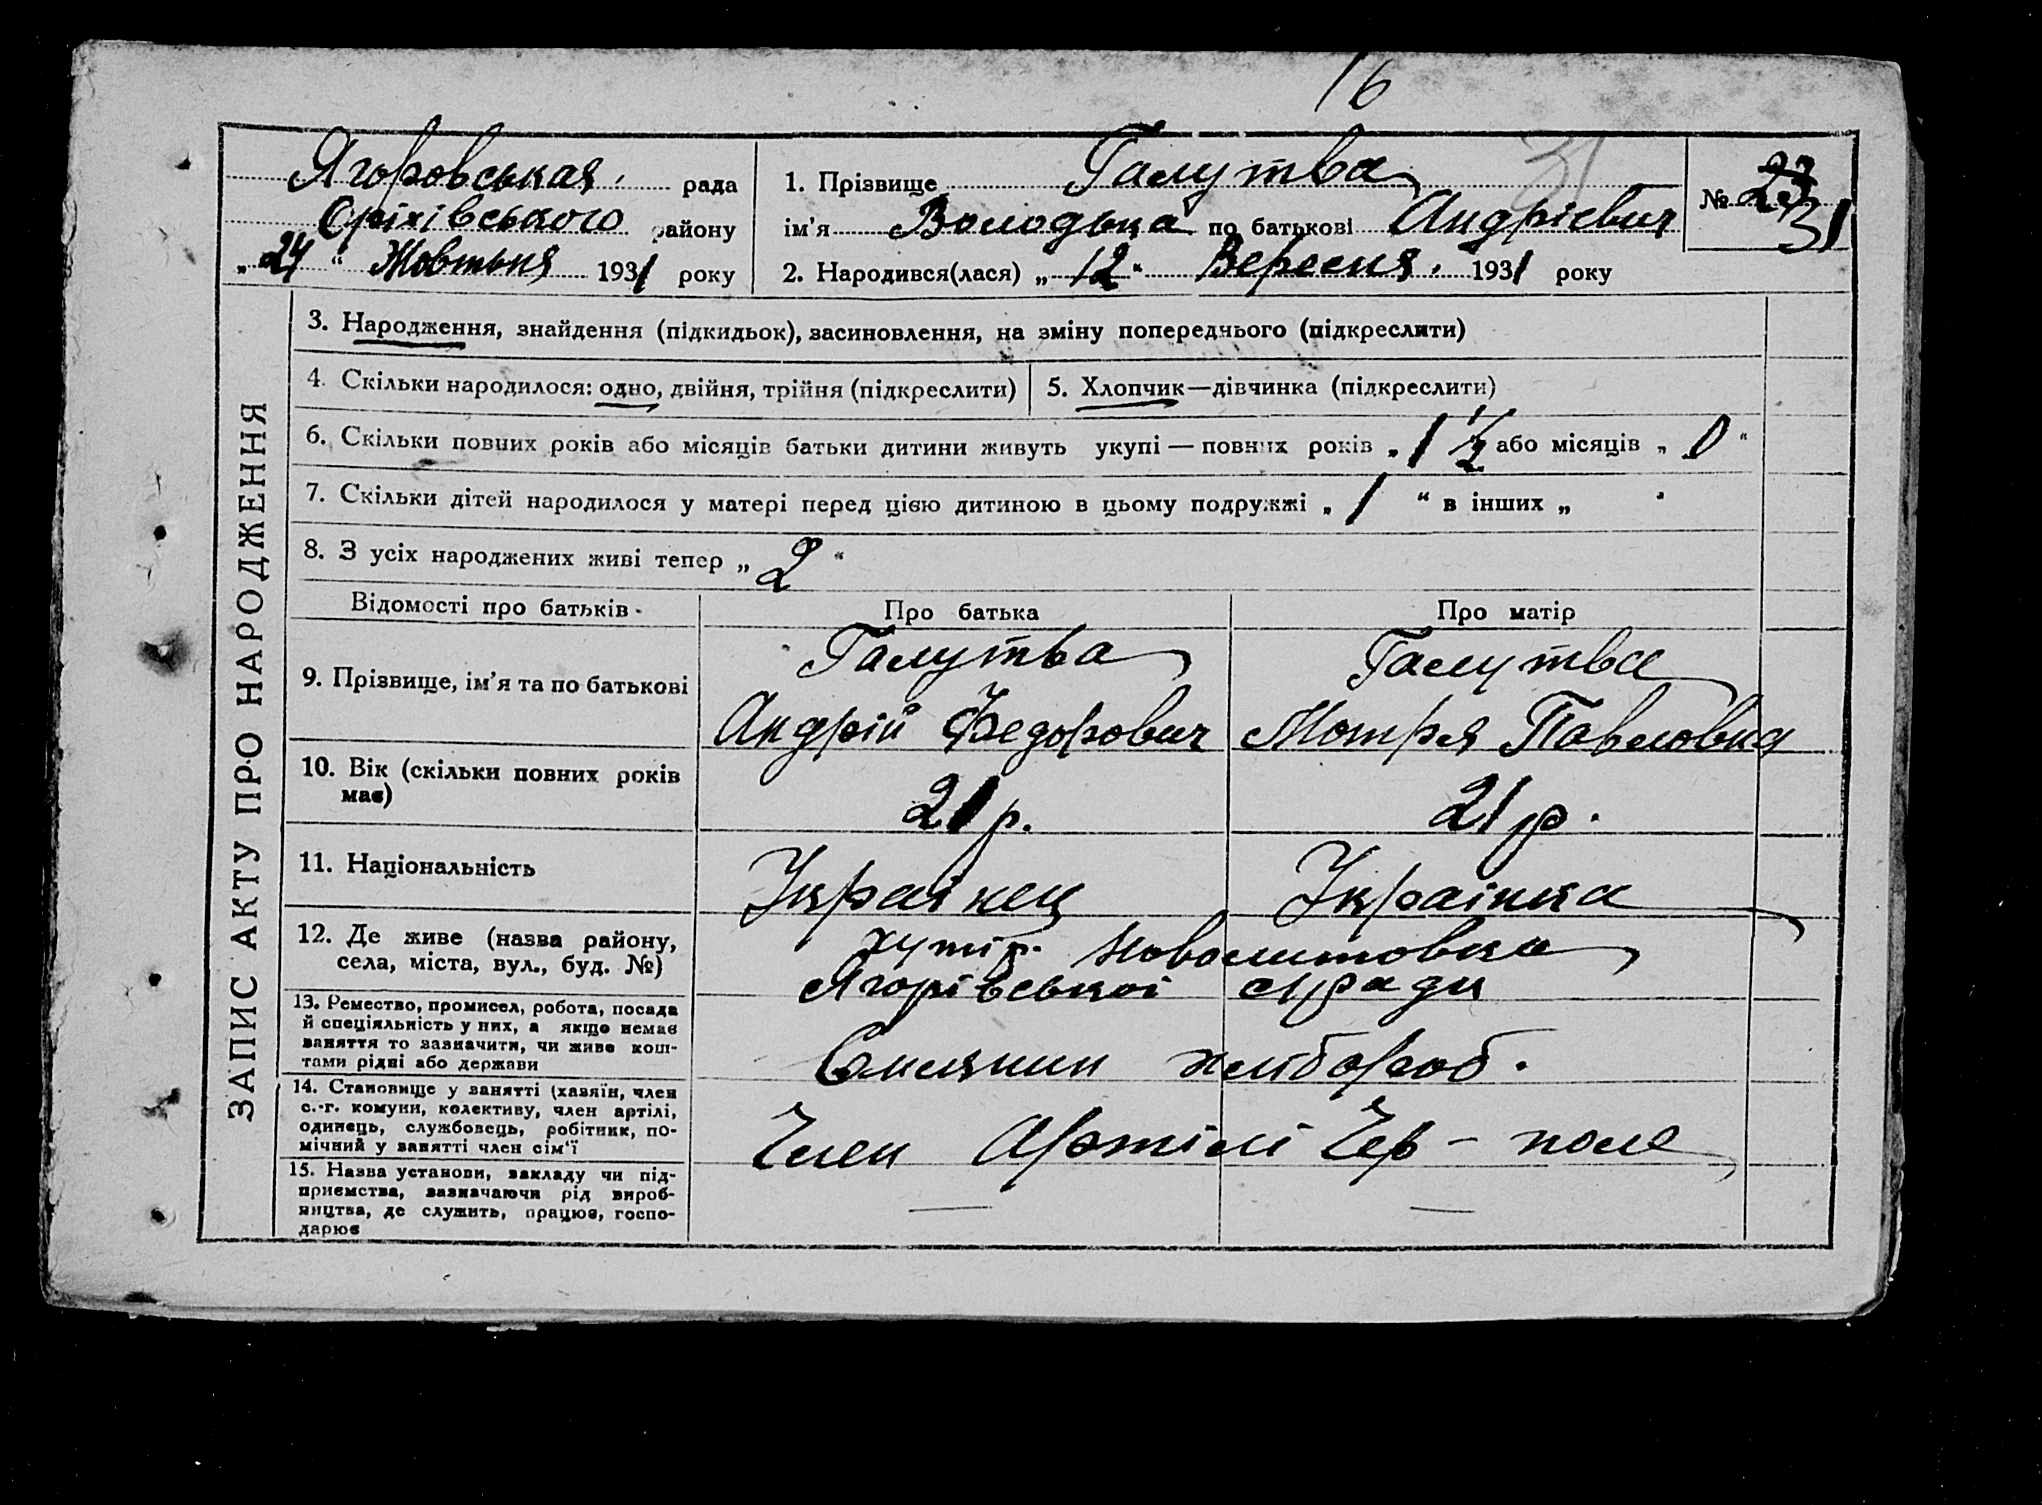 16
Ягоровськая рада
Оріхівського району
„24“ Жовтьня 1931 року
1. Прізвище Галутва
ім'я Володька по батькові Андріевич
2. Народився(лася) „12“ Вересня 1931 року
31
№ 23
31
ЗАПИС АКТУ ПРО НАРОДЖЕННЯ
3. Народження, знайдення (підкидьок), засиновлення, на зміну попереднього (підкреслити)
4. Скільки народилося: одно, двійня, трійня (підкреслити)
5. Хлопчик—дівчинка (підкреслити)
6. Скільки повних років або місяців батьки дитини живуть укупі — повних років „1 1/2 або місяців „0“
7. Скільки дітей народилося у матері перед цією дитиною в цьому подружжі „1“ в інших „ “
8. З усіх народжених живі тепер „2“
Відомості про батьків
Про батька
Про матір
9. Прізвище, ім'я та по батькові
Галутва
Андрій Федорович
Галутва
Мотря Павловна
10. Вік (скільки повних років
має)
21 р.
21 р.
11. Національність
Украінец
Украінка
12. Де живе (назва району,
села, міста, вул., буд. №)
хутір.
Ягорівськоі с/ради
13. Ремество, промисел, робота, посада
й спеціяльність у них, а якщо немає
заняття то зазначити, чи живе кош-
тами рідні або держави
Силянин хліборob.
14. Становище у занятті (хазяїн, член
с.-г. комуни, колективу, член артілі,
одинець, службовець, робітник, по-
мічний у занятті член сім'ї
Член Артілі Чер - поле
15. Назва установи, закладу чи під-
приємства, зазначаючи рід вироб-
ництва, де служить, працює, госпо-
дарює
— —